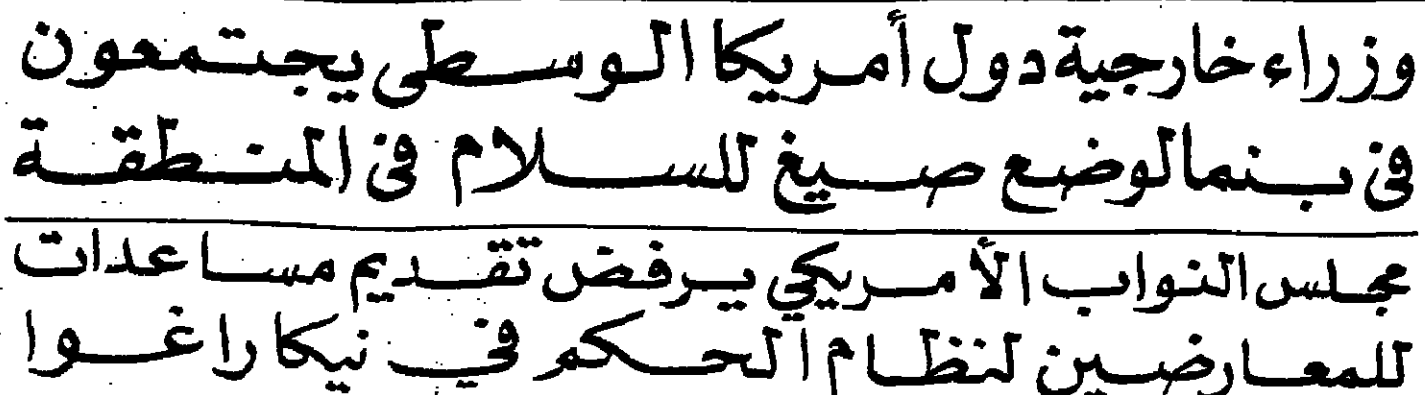 وزراء خارجية دول أمريكا الوسطى يجتمعون
في بنما لوضع صيغ للسلام في المنطقة
مجلس النواب الأمريكي يرفض تقديم مساعدات
للمعارضين لنظام الحكم في نيكاراغوا